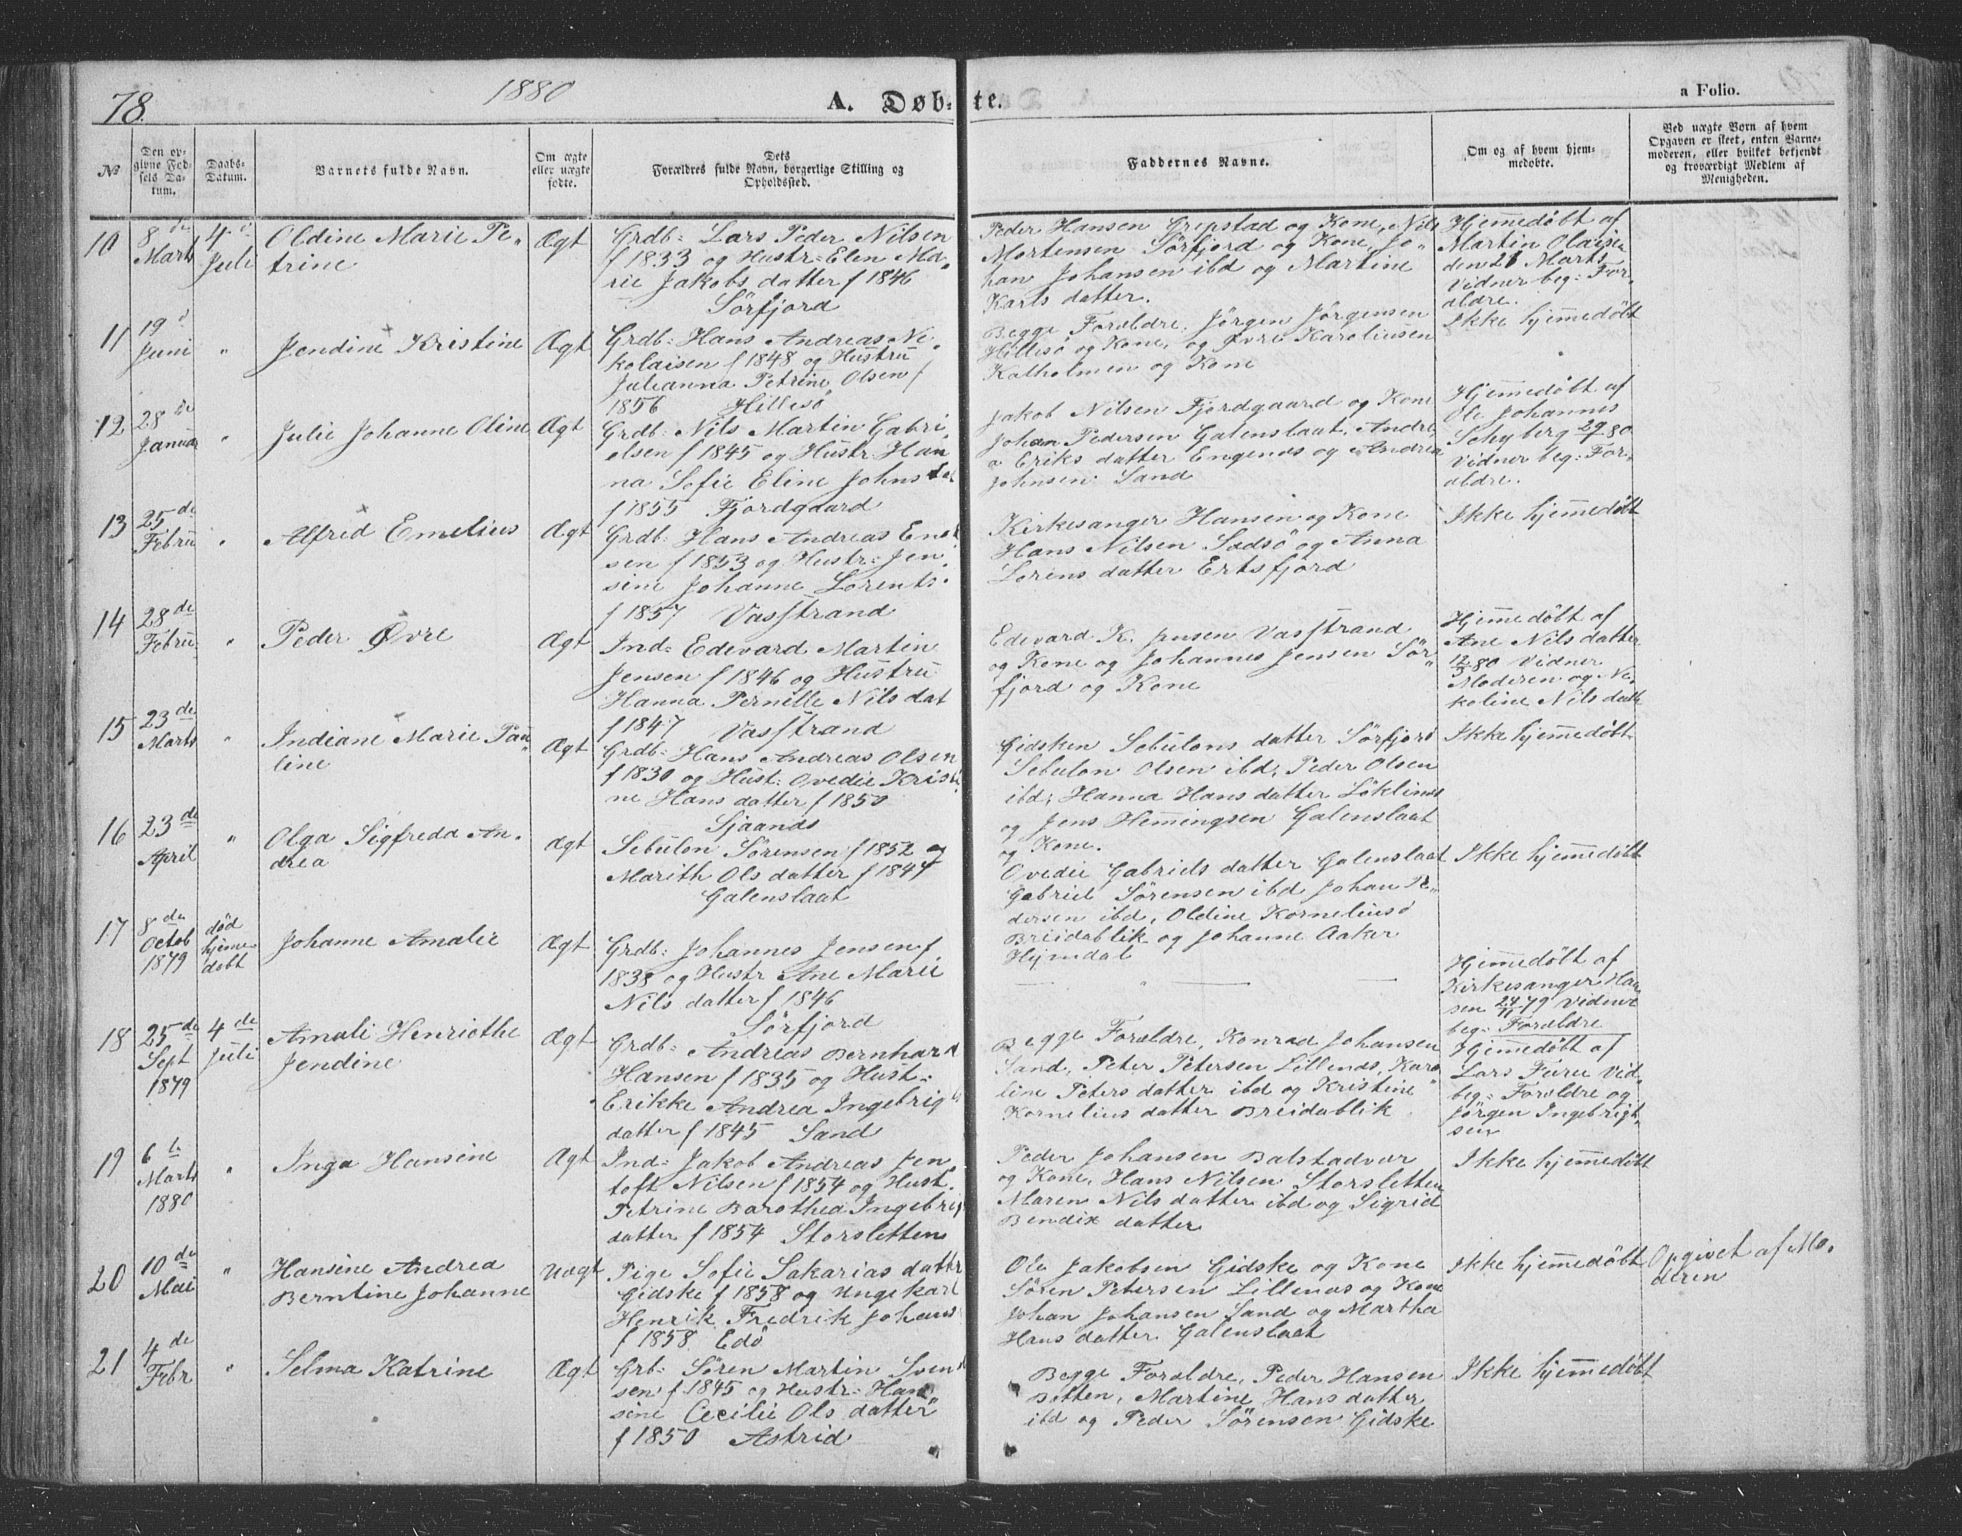 78.
1880
A. Døbte.
a Folio.
No
Den opgivne Fødsels Datum.
Daabs-Datum.
Barnets fulde Navn.
Om ægte eller uægte fødte.
Dets Forældres fulde Navn, borgerlige Stilling og Opholdssted.
Faddernes Navne.
Om og af hvem hjemmedøbte.
Ved uægte Børn af hvem Opgaven er skeet, enten Barnemoderen, eller hvilket bekjendt og troværdigt Medlem af Menigheden.
10
8de
Marts
4de
Juli
Oldine Marie Pe-
trine
Ægt
Grdb: Lars Peder Nilsen
f 1833 og Hustr: Elen Ma-
rie Jakobs datter f 1846
Sörfjord
Peder Hansen Grepstad og Kone, Nils
Mortensen Sörfjord og Kone, Jo-
han Johansen ibd og Martine
Karls datter.
Hjemedøbt af
Martin Olaisen
den 21 Marts
Vidner beg: For-
ældre.
11
19d
Juni
"
Jendine Kristine
Ægt
Grdb: Hans Andreas Ni-
kolaisen f 1848 og Hustru
Julianna Petrine Olsen f
1856 Hillesö
Begge Forældre, Jörgen Jörgensen
Hillesö og Kone, og Iver Karoliusen
Kalholmen og Kone
Ikke hjemedøbt
12
28de
Januar
"
Julie Johanne Oline
Ægt
Grdb: Nils Martin Gabri-
elsen f 1845 og Hustr: Han
na Sofie Eline Johns dat
f 1855 Fjordgaard
Jakob Nilsen Fjordgaard og Kone
Johan Pedersen Galenslaat, Andre-
a Eriks datter Engenes og Andrea
Johnsen Sand
Hjemedøbt af
Ole Johannes
Schyberg 29/1 80
Vidner beg: For-
ældre.
13
25de
Febru
"
Alfred Emelius
Ægt
Grdb: Hans Andreas Enok
sen f 1853 og Hustr: Jen-
sine Johanne Lorents-
f 1857 Vasstrand
Kirkesanger Hansen og Kone
Hans Nilsen Sædsö og Anna
Lorens datter Ertsfjord
Ikke hjemedøbt
14
28de
Febru
"
Peder Øvre
Ægt
Ind: Edevard Martin
Jensen f 1846 og Hustru
Hanna Pernille Nils dat
f 1847 Vasstrand
Edevard K. Jensen Vasstrand
og Kone og Johannes Jensen Sör-
fjord og Kone
Hjemedøbt af
Ane Nils datter
12/3 80 Vidner
Moderen og Ni-
koline Nils datt
15
23de
Marts
"
Indiane Marie Pau-
line
Ægt
Grdb: Hans Andreas Olsen
f 1830 og Hust: Ovedie Kristi
ne Hans datter f 1850
Sjaanæs
Gidsken Sebulons datter Sörfjord
Sebulon Olsen ibd, Peder Olsen
ibd, Hanna Hans datter Löklinæs
og Jens Hemingsen Galenslaat
og Kone.
Ikke hjemedøbt
16
23de
April
"
Olga Sigfreda An-
drea
Ægt
Sebulon Sörensen f 1852 og
Marith Ols datter f 1847
Galenslaat
Ovedie Gabriels datter Galenslaat
Gabriel Sörensen ibd Johan Pe-
dersen ibd, Oldine Korneliusö
Breidablik og Johanne Aaker
Hejmdal
Ikke hjemedøbt
17
8de
Octob
1879
død
hjeme
døbt
Johanne Amalie
Ægt
Grdb: Johannes Jensen f.
1838 og Hustr Ane Marie
Nils datter f 1846
Sörfjord
Hjemedøbt af
Kirkesanger Han
sen 24/11 79 Vidner
beg: Forældre
18
25de
Sept
1879
4de
Juli
Amali Henriethe
Jendine
Ægt
Grdb: Andreas Bernhard
Hansen f 1835 og Hust:
Erikke Andrea Ingebrigts
datter f 1845 Sand
Begge Forældre, Konrad Johansen
Sand, Peter Petersen Lillenæs, Karo
line Peters datter ibd og Kristine
Kornelius datter Breidablik
Hjemedøbt af
Lars Furu Vid-
beg: Forældre og
Jörgen Ingebrigt-
sen
19
6te
Marts
1880
"
Inga Hansine
Ægt
Ind: Jakob Andreas Jen-
toft Nilsen f 1854 og Hust:
Petrine Barothea Ingebrigt
datter f 1854 Storsletten
Peder Johansen Balstadvær
og Kone, Hans Nilsen Storsletten
Maren Nils datter ibd og Sigrid
Bendix datter
Ikke hjemedøbt
20
10de
Mai
"
Hansine Andrea
Berntine Johanne
Uægt
Pige Sofie Sakarias datter
Gidske f 1858 og Ungekarl
Henrik Fredrik Johans
f 1858 Edö
Ole Jakobsen Gidske og Kone
Sören Petersen Lillenæs og Kone
Johan Johansen Sand og Martha
Hans datter Galenslaat
Ikke hjemedøbt
Opgivet af Mo-
deren
21
4de
Febr
"
Selma Katrine
Ægt
Grb: Sören Martin Svend
sen f 1845 og Hustr: Han
sine Cecilie Ols datter
f 1850 Astrid
Begge Forældre, Peder Hansen
Botten, Martine Hans datter
ibd og Peder Sörensen Gidske
Ikke hjemedøbt